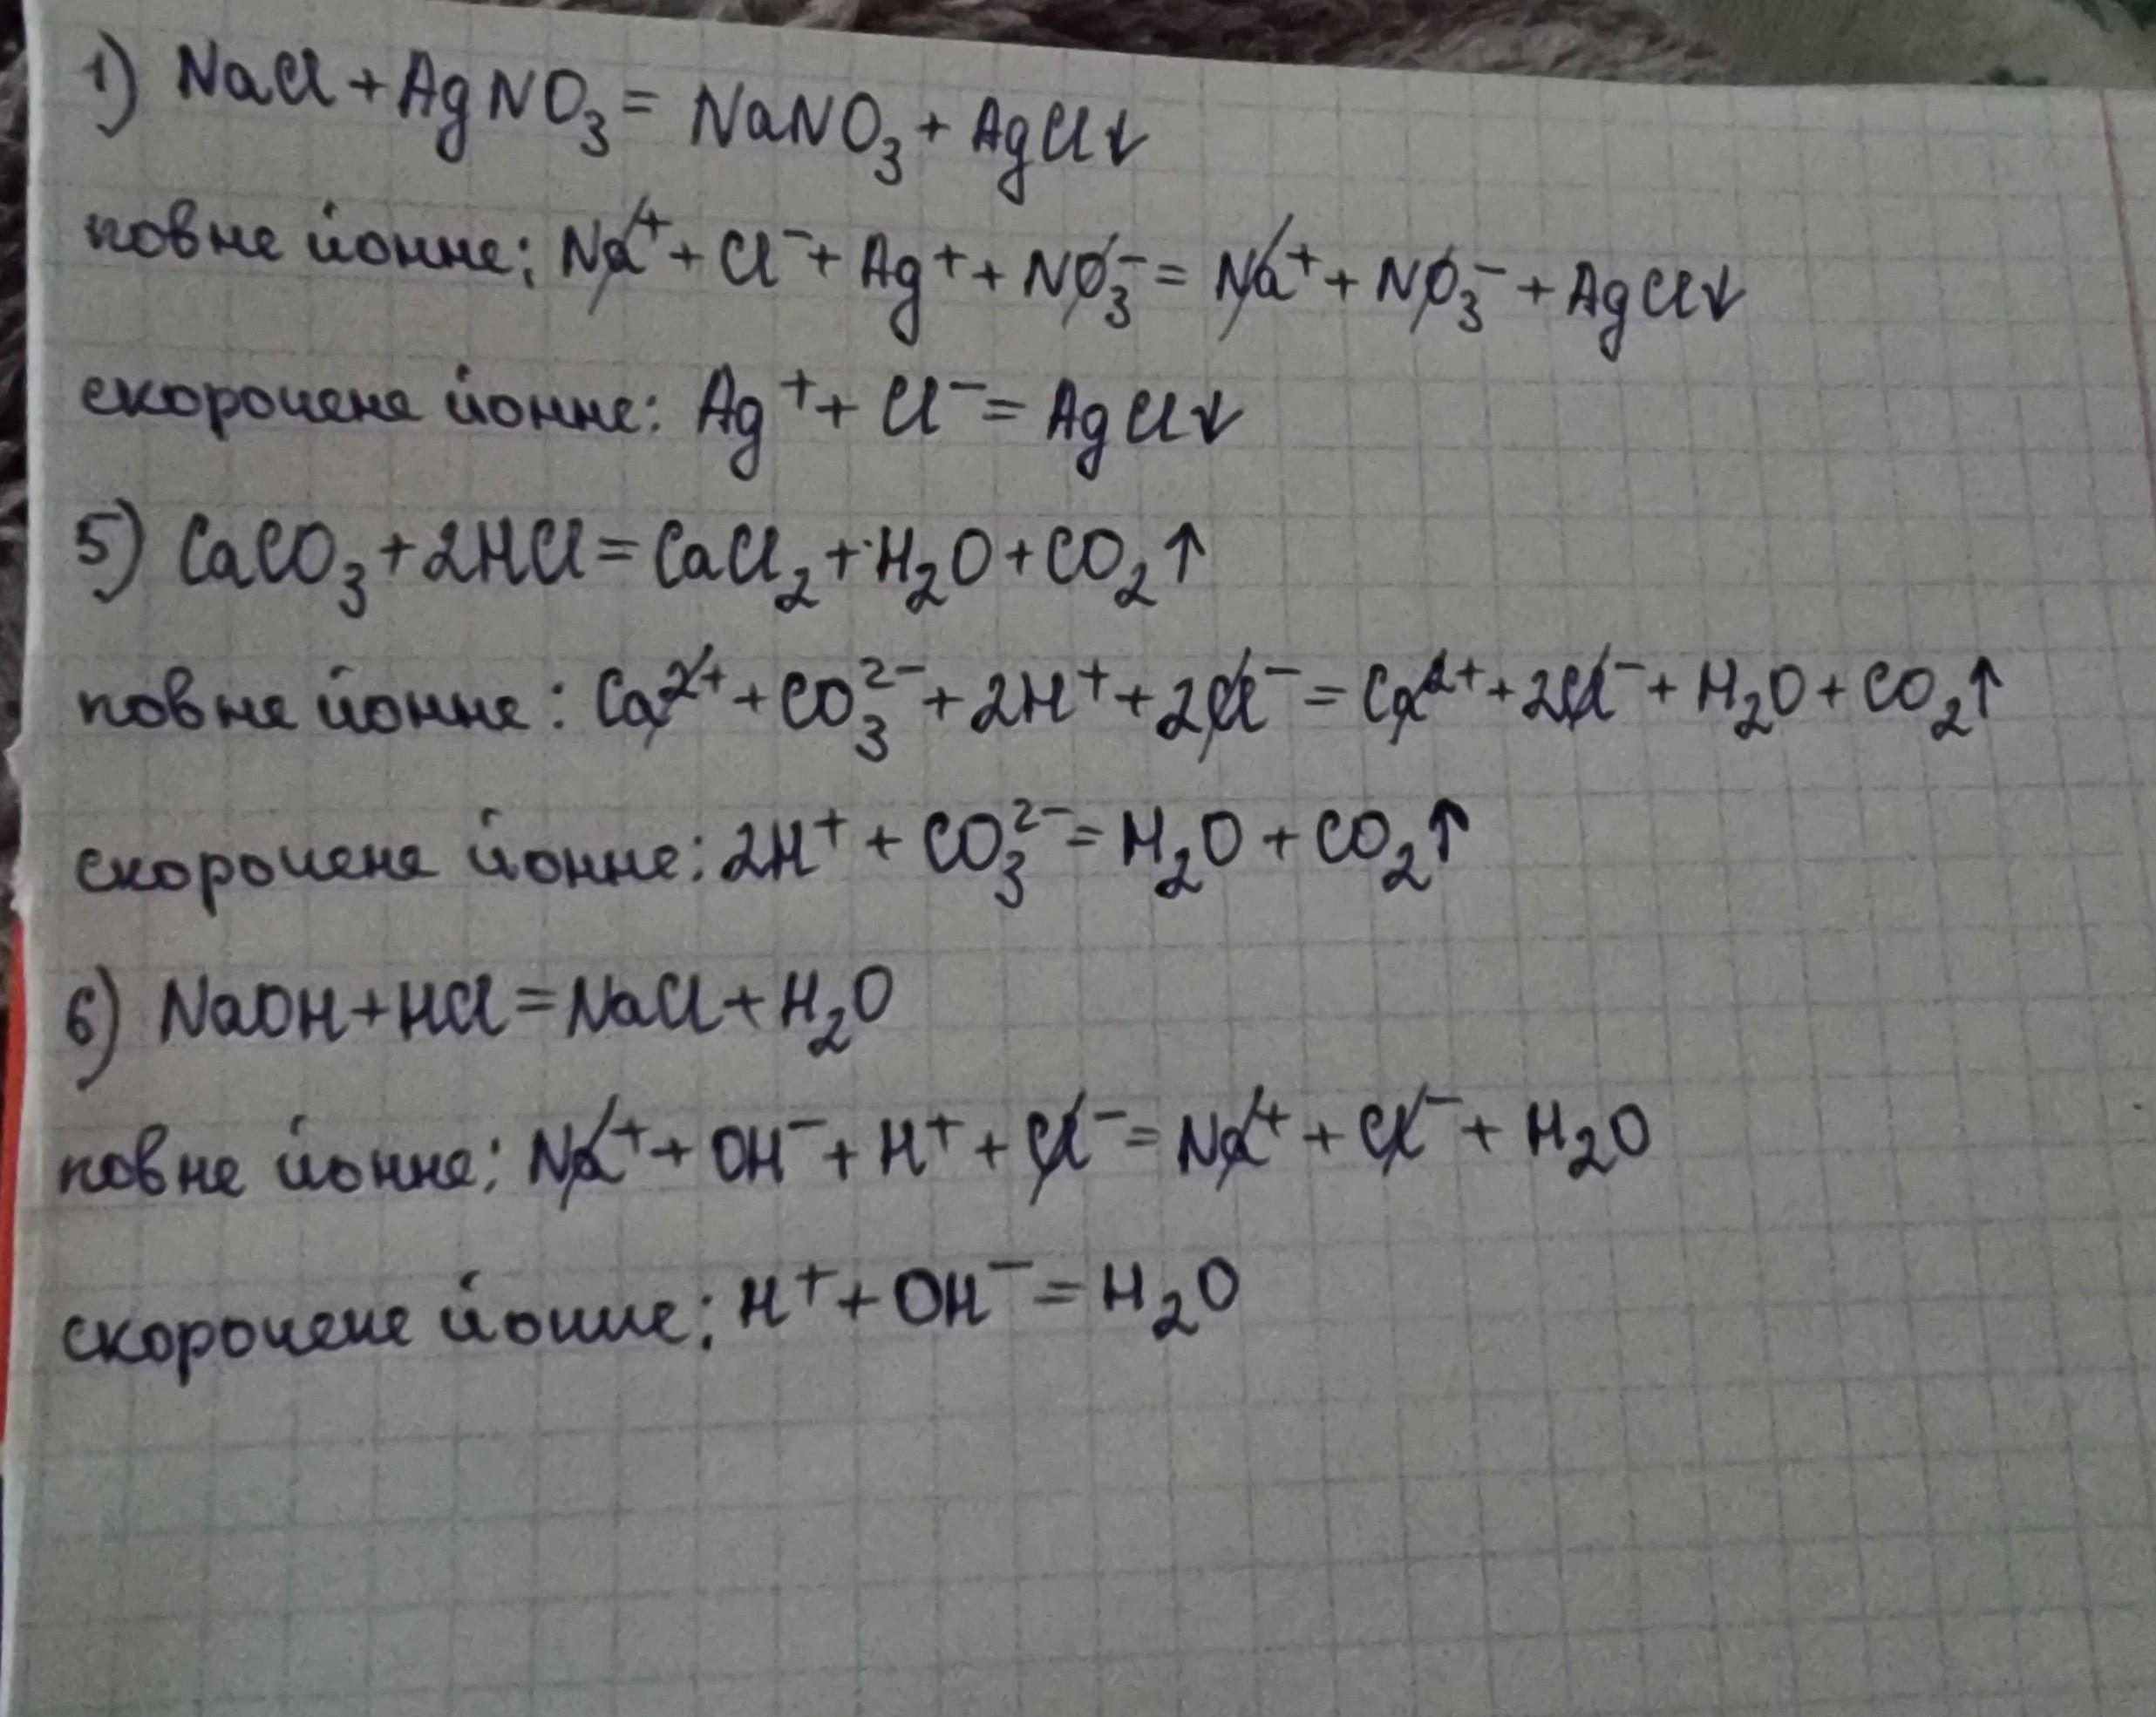 1) NaCl + AgNO₃ = NaNO₃ + AgCl↓
повне йонне: Na⁺ + Cl⁻ + Ag⁺ + NO₃⁻ = Na⁺ + NO₃⁻ + AgCl↓
скорочене йонне: Ag⁺ + Cl⁻ = AgCl↓
5) CaCO₃ + 2HCl = CaCl₂ + H₂O + CO₂↑
повне йонне: Ca²⁺ + CO₃²⁻ + 2H⁺ + 2Cl⁻ = Ca²⁺ + 2Cl⁻ + H₂O + CO₂↑
скорочене йонне: 2H⁺ + CO₃²⁻ = H₂O + CO₂↑
6) NaOH + HCl = NaCl + H₂O
повне йонне: Na⁺ + OH⁻ + H⁺ + Cl⁻ = Na⁺ + Cl⁻ + H₂O
скорочене йонне: H⁺ + OH⁻ = H₂O